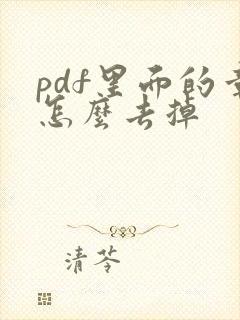 pdf里面的章
怎麼去掉
清苓